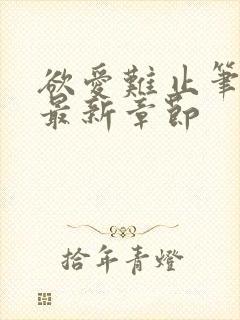 欲愛難止筆
最新章節
拾年青燈